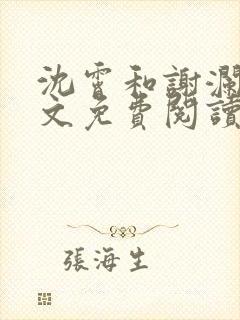 沈霄和謝瀾
文免費閱讀
張海生